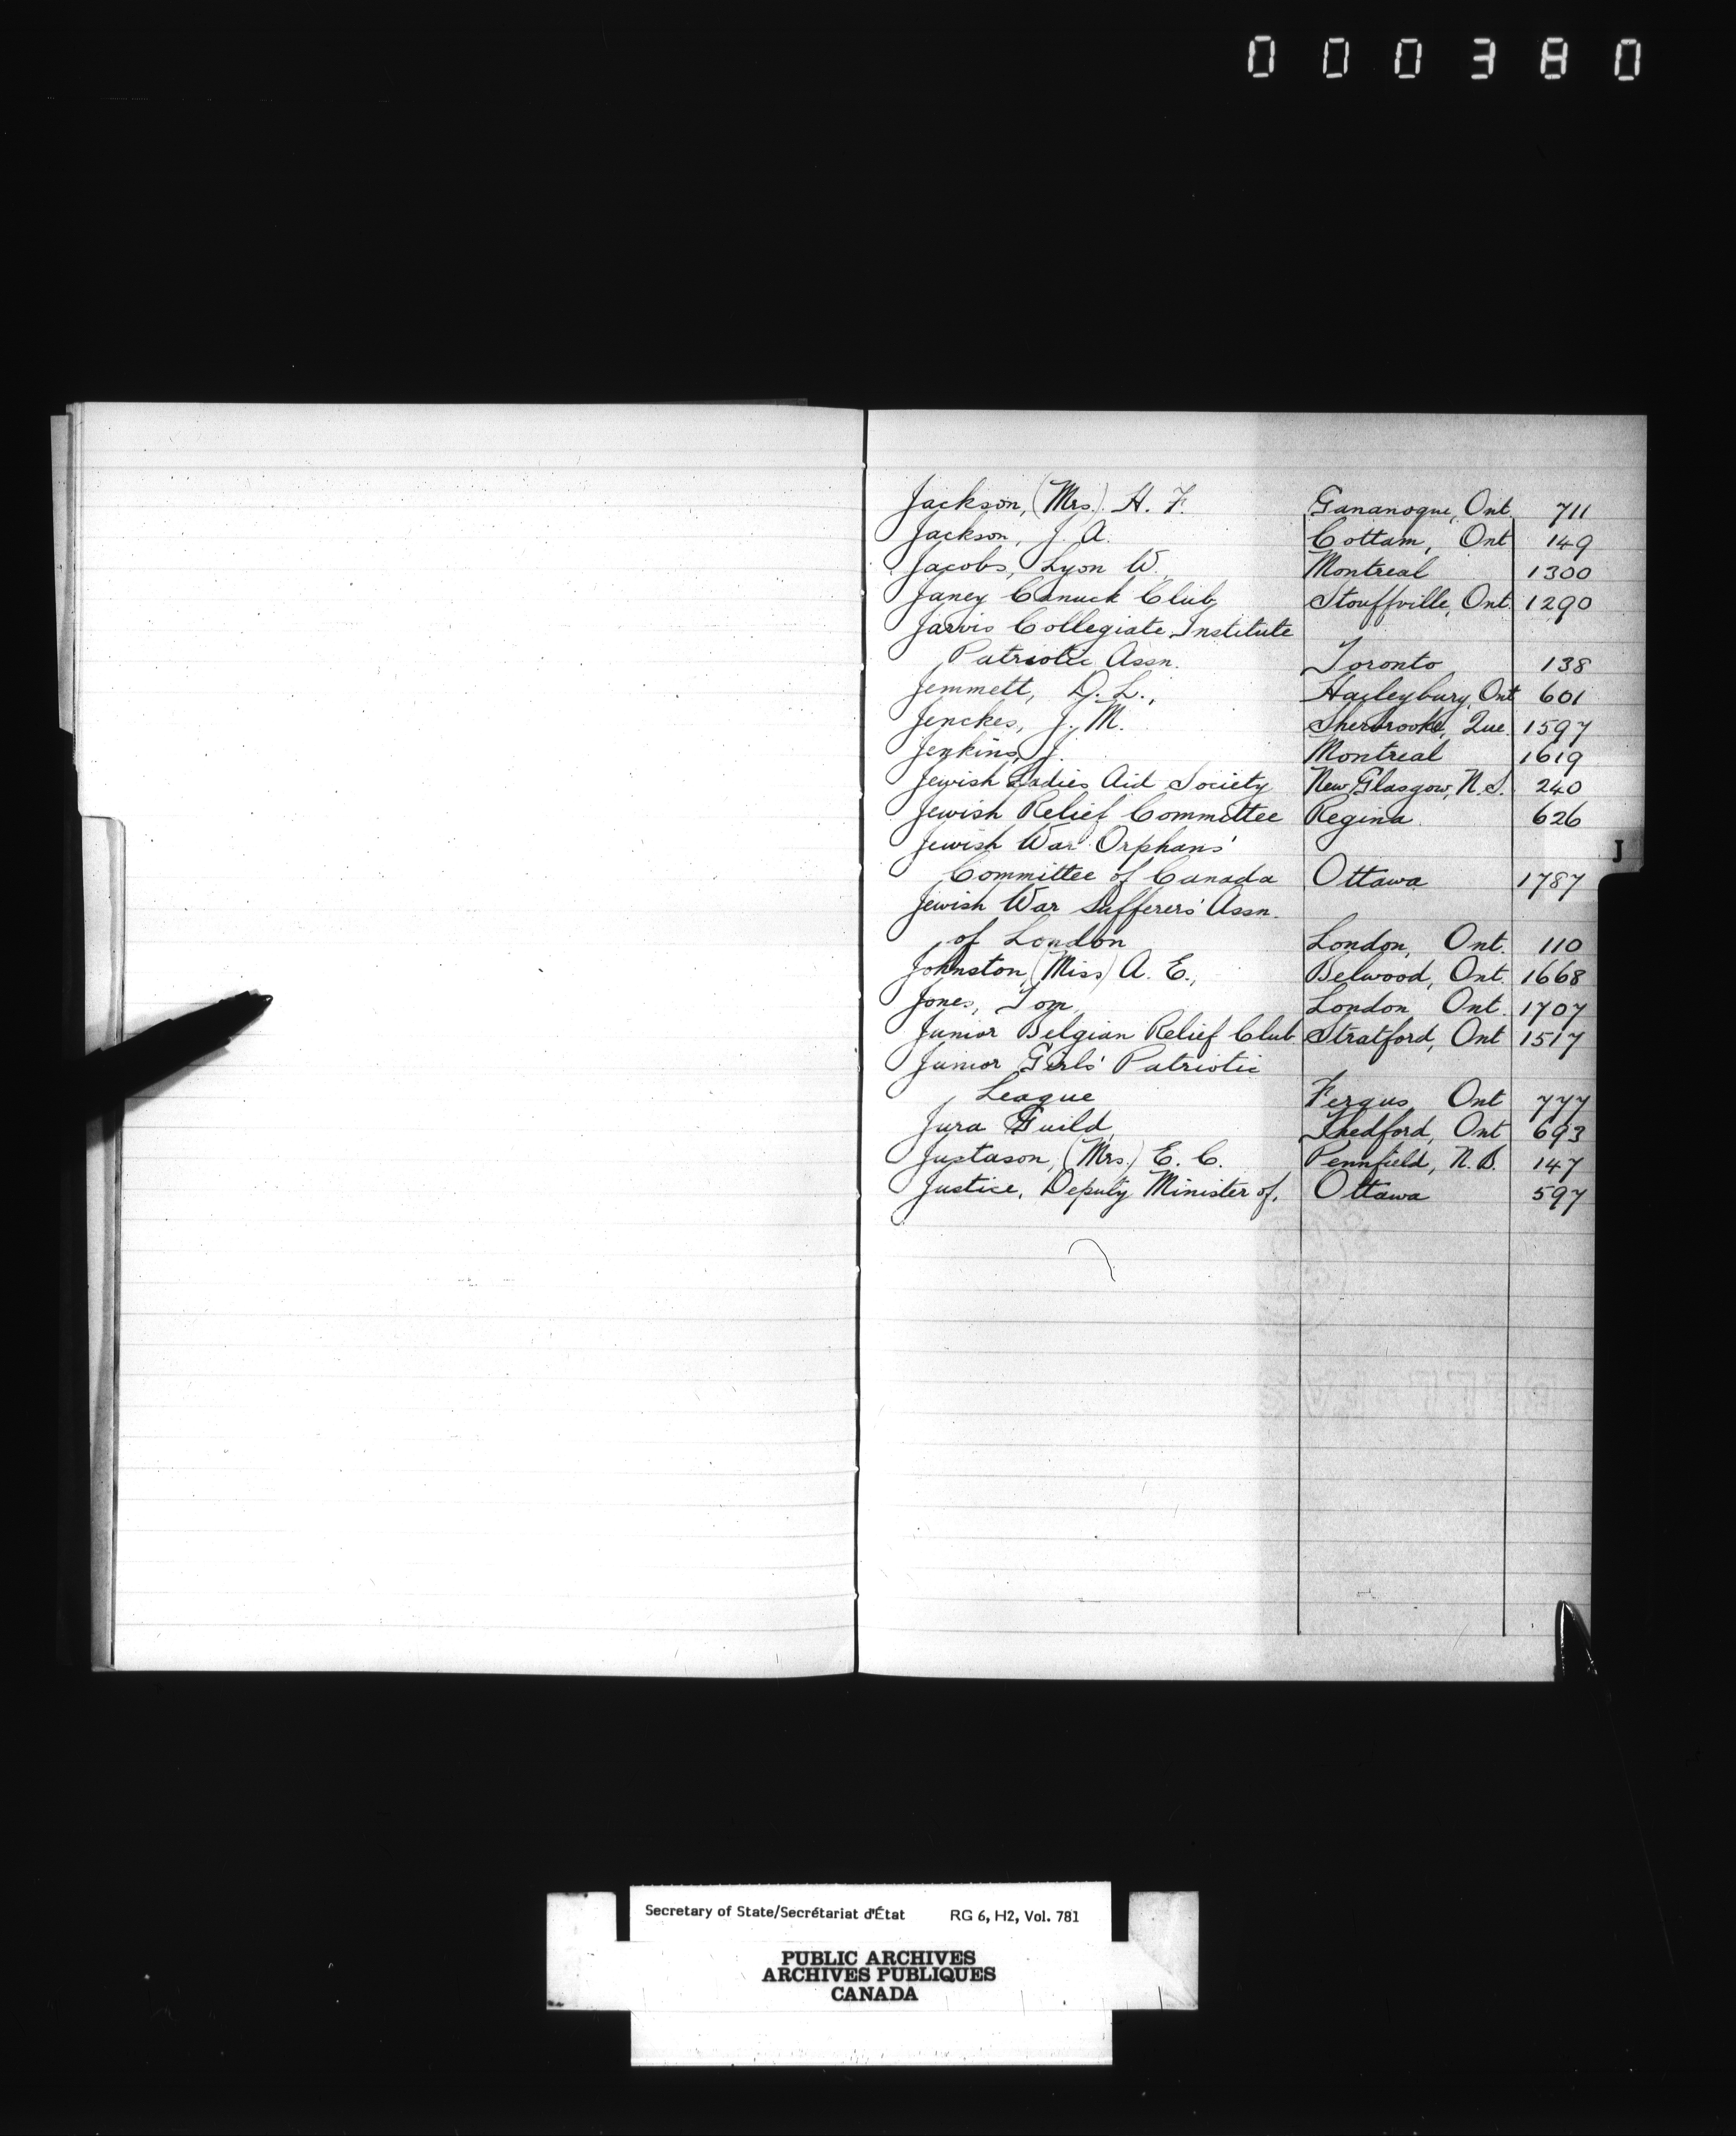 000380
Jackson, (Mrs.) H. F. Gananoque, Ont. 711
Jackson, J. A. Cottam, Ont 149
Jacobs, Lyon W. Montreal 1300
Janey Canuck Club, Stouffville, Ont. 1290
Jarvis Collegiate Institute
Patriotic Assn. Toronto 138
Jemmett, D. L., Haileybury, Ont 601
Jenckes, J. M. Sherbrooke, Que. 1597
Jenkins, J. Montreal 1619
Jewish Ladies Aid Society New Glasgow, N.S. 240
Jewish Relief Committee Regina 626
Jewish War Orphans'
Committee of Canada Ottawa 1787
Jewish War Sufferers' Assn.
of London London, Ont. 110
Johnston, (Miss) A. E., Belwood, Ont. 1668
Jones, Tom, London, Ont. 1707
Junior Belgian Relief Club Stratford, Ont 1517
Junior Girls' Patriotic
League Fergus, Ont 777
Jura Guild, Thedford, Ont 693
Justason, (Mrs.) E. C. Pennfield, N.B. 147
Justice, Deputy Minister of, Ottawa 597
J
Secretary of State/Secrétariat d'État RG 6, H2, Vol. 781
PUBLIC ARCHIVES
ARCHIVES PUBLIQUES
CANADA